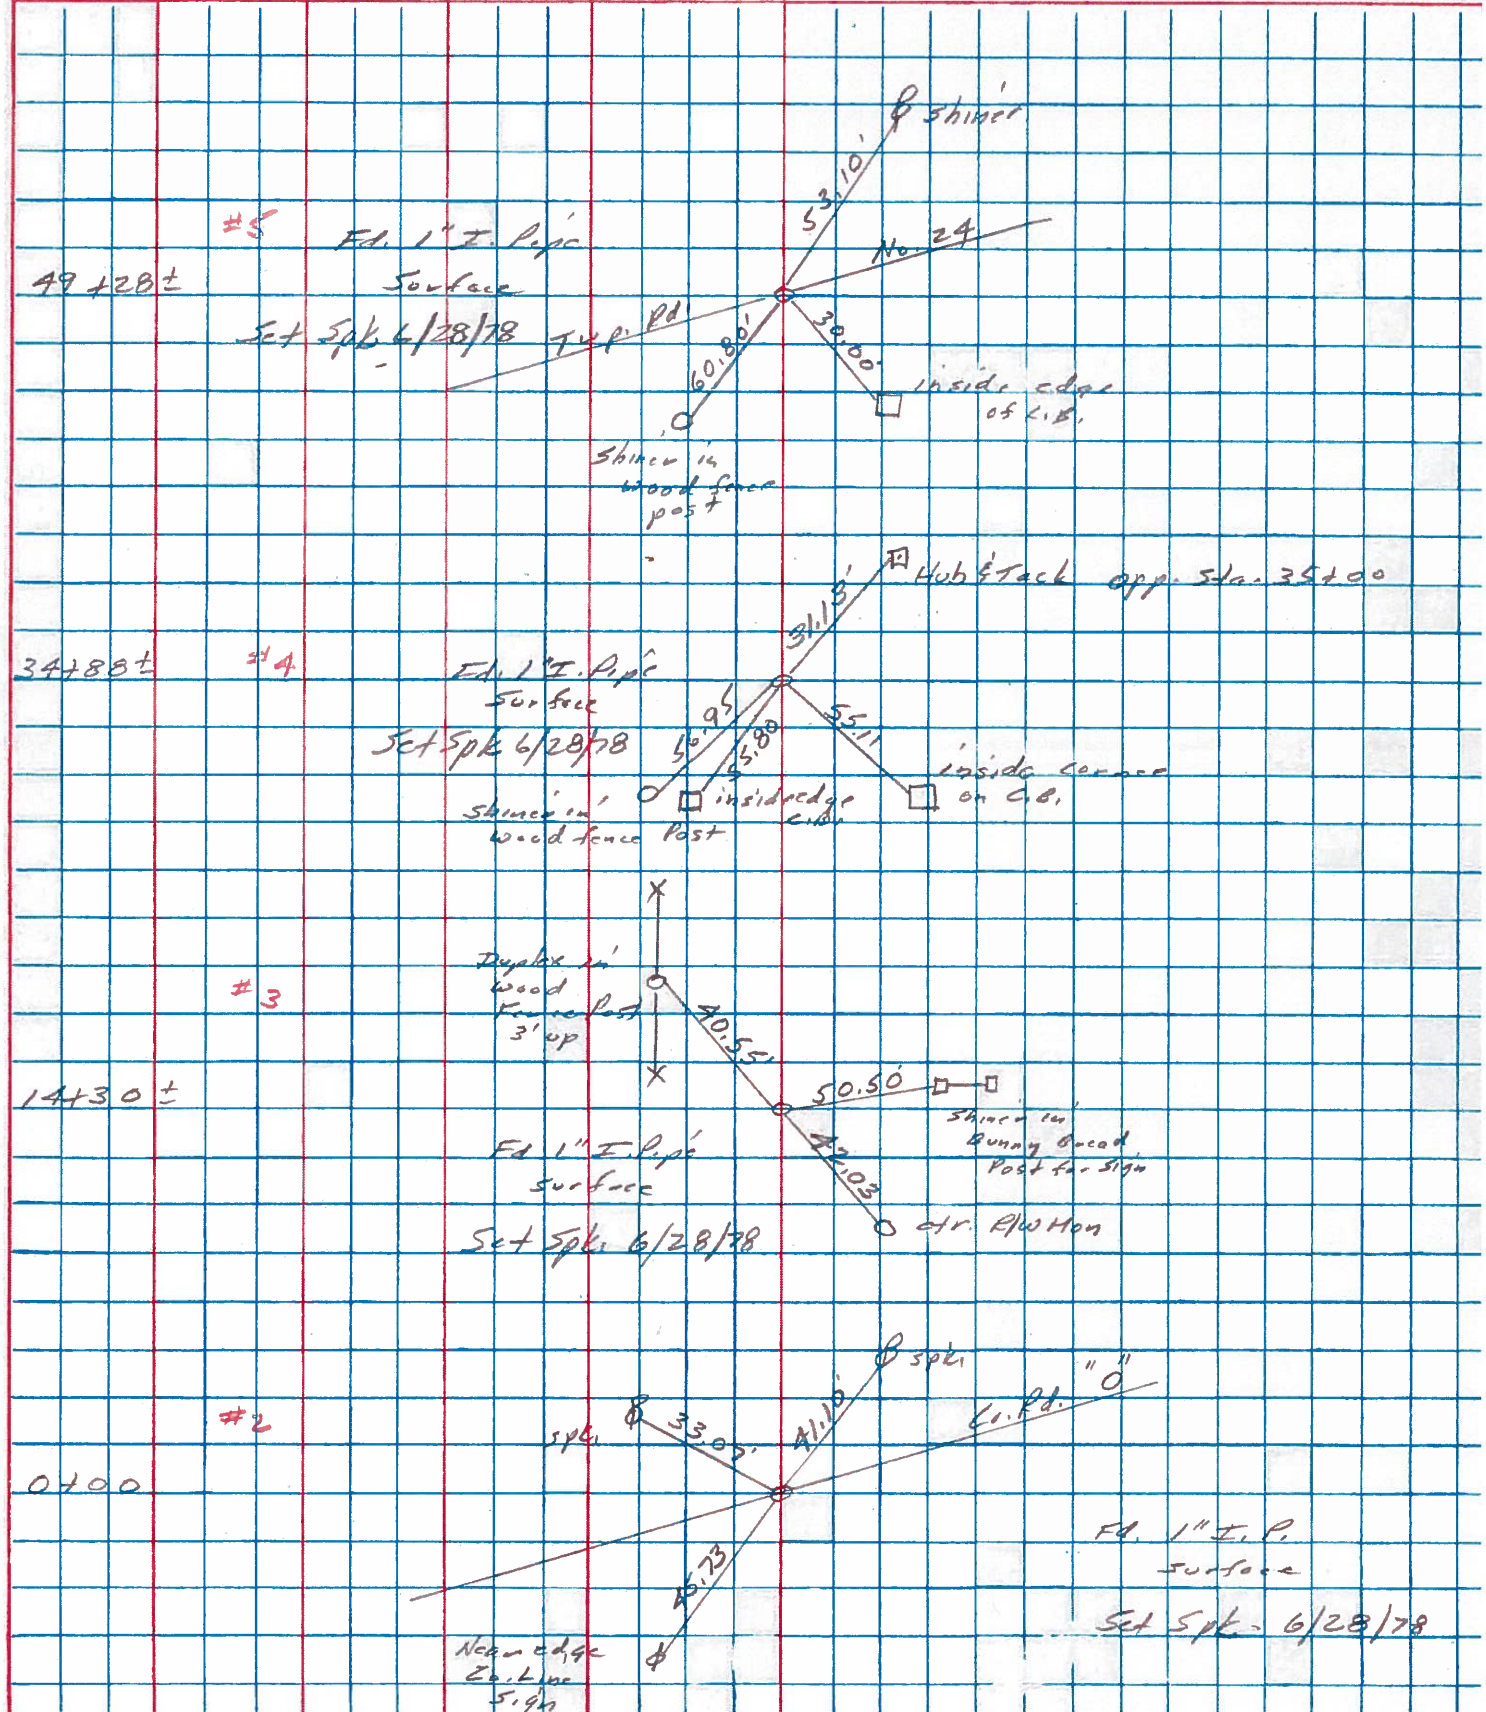 Shiner
53.10'
#5
Fd. 1" I. Pipe
No. 24
49+28±
Surface
Set Spk. 6/28/78
Twp. Rd.
60.80'
30.00'
inside edge
of C.B.
Shiner in
wood fence
post
Hub & Tack opp. Sta. 35+00
34+88±
#4
Fd. 1" I. Pipe
Surface
Set Spk 6/28/78
50.95
55.80
55.11
inside corner
on C.B.
Shiner in
wood fence Post
inside edge
C.B.
Duplex in
wood
Fence Post
3' up
#3
40.55'
14+30±
50.50'
Shiner in
Bunny Bread
Post for Sign
Fd. 1" I. Pipe
Surface
Set Spk. 6/28/78
ctr. R/W Mon
spk.
"O"
Co. Rd.
#2
spk.
33.07'
41.10'
0+00
Fd. 1" I. P.
Surface
Set Spk. 6/28/78
Near edge
Co. Line
Sign